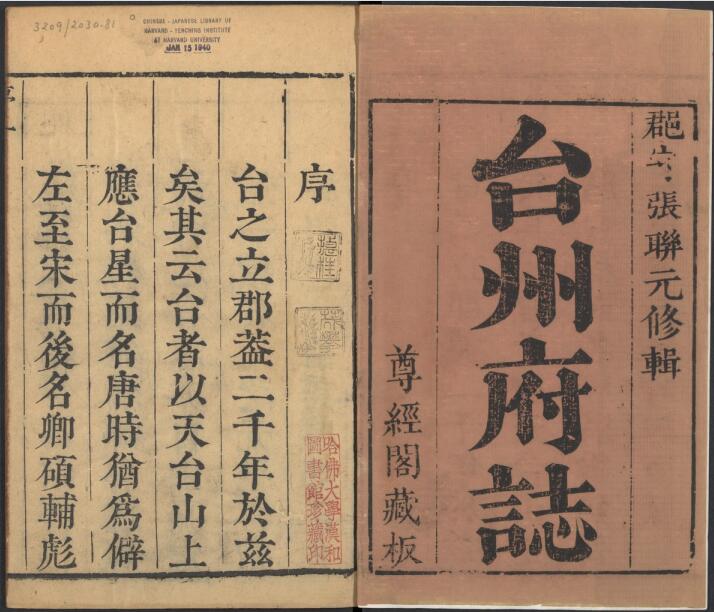 郡守張聯元修輯
台州府誌
尊經閣藏板
3209/2030.81
CHINESE - JAPANESE LIBRARY OF
HARVARD - YENCHING INSTITUTE
AT HARVARD UNIVERSITY
JAN 15 1940
序
台之立郡葢二千年於茲
矣其云台者以天台山上
應台星而名唐時猶爲僻
左至宋而後名卿碩輔彪
哈佛大學漢和
圖書館珍藏印